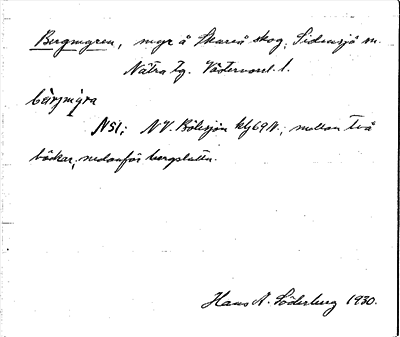 Bergmyren, myr å Skareå skog, Sidensjö sn.
Nätra tg. Västernorrl. l.
bärjmýra
N51; NV. Bölesjön kbj69N.; mellan två
bäckar, nedanför bergslutten.
Hans A. Söderberg 1930.